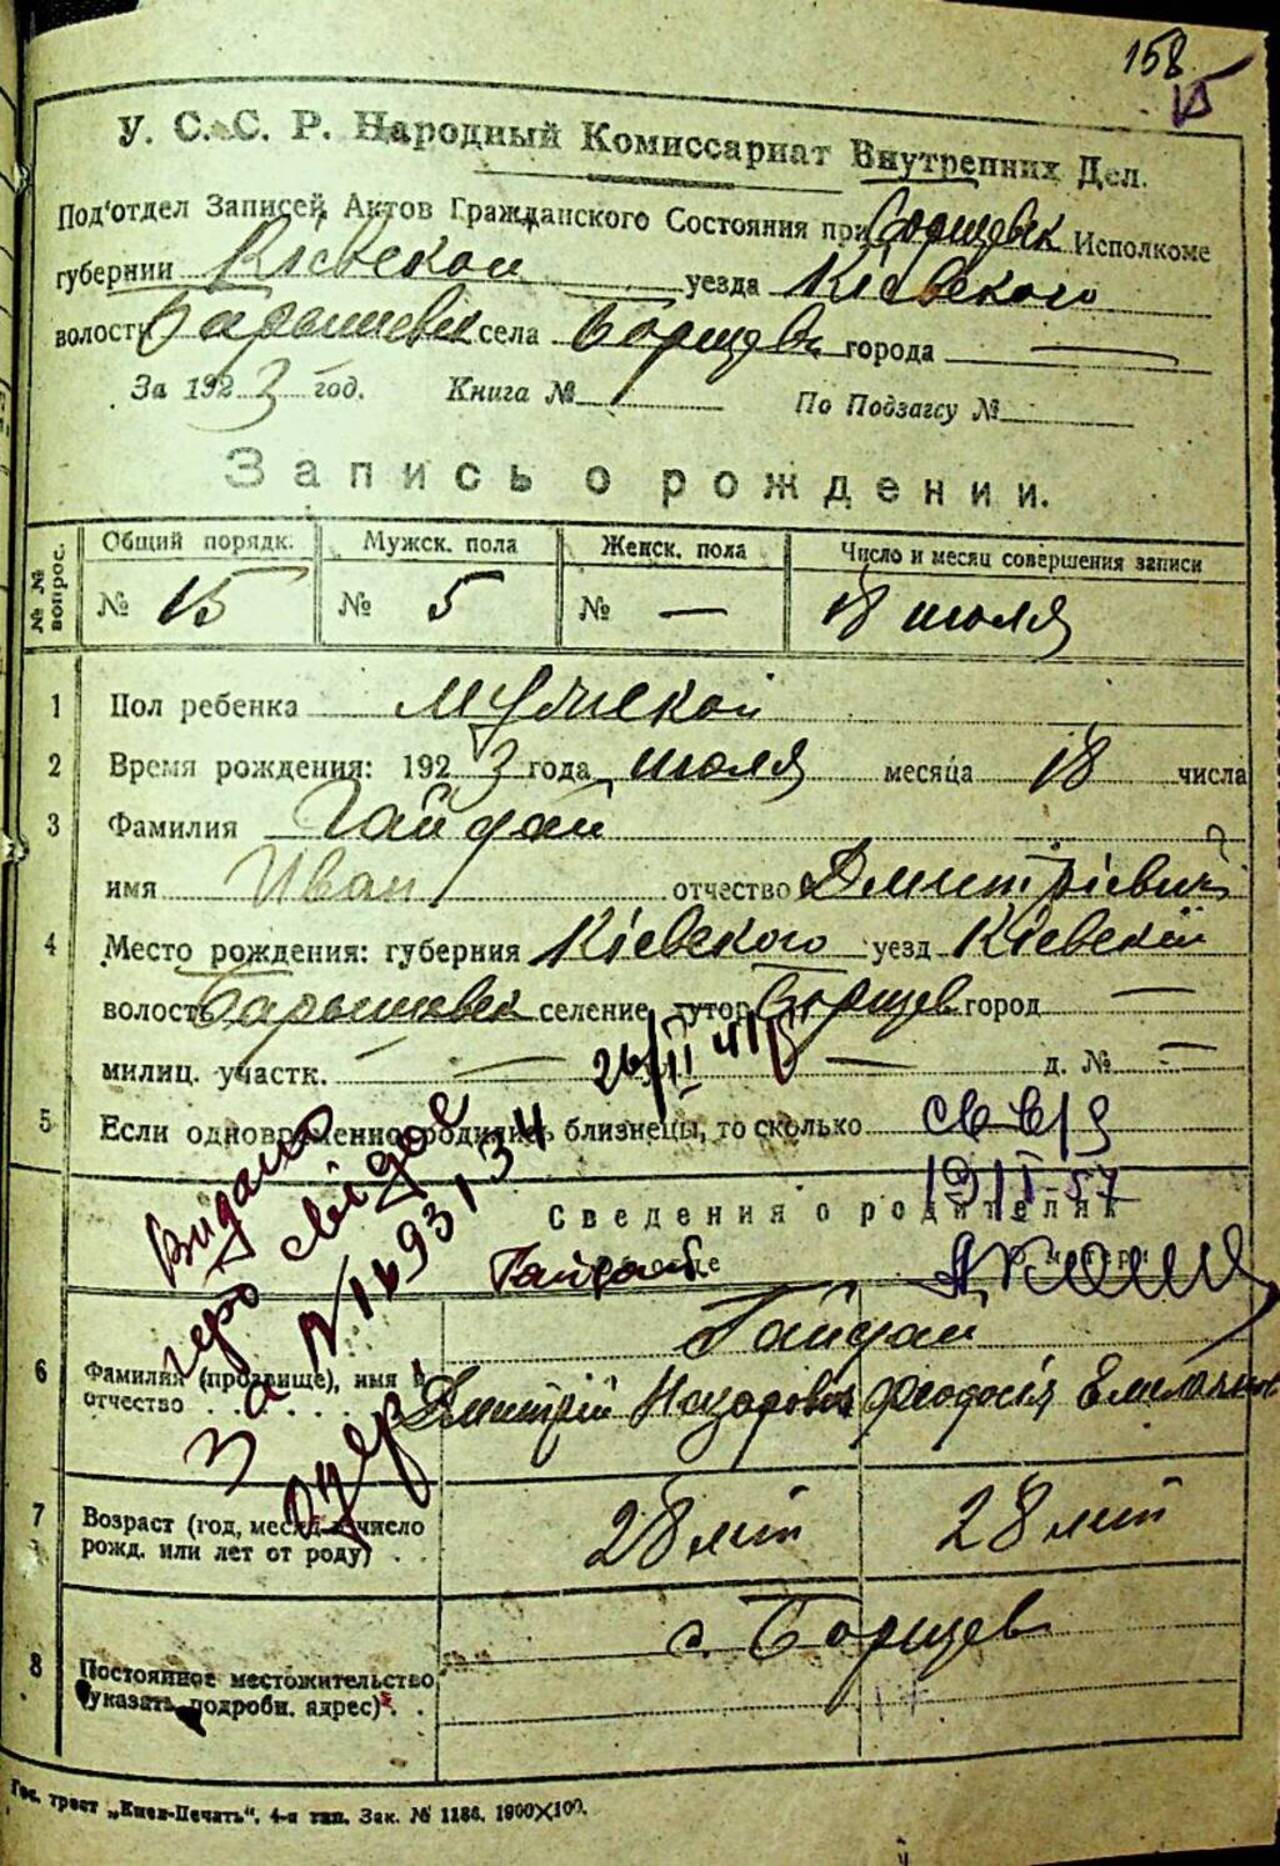 158
15
У. С. С. Р. Народный Комиссариат Внутренних Дел.
Под'отдел Записей Актов Гражданского Состояния при Борщевск Исполкоме
губернии Кіевской уезда Кіевского
волости Барышевск села Борщев города —
За 1923 год. Книга № По Подзагсу №
Запись о рождении.
№ № вопрос. Общий порядк. Мужск. пола Женск. пола Число и месяц совершения записи
№ 15 № 5 № — 18 июля
1 Пол ребенка мужской
2 Время рождения: 1923 года июля месяца 18 числа
3 Фамилия Гайдай
имя Иван отчество Дмитріевич
4 Место рождения: губерния Кіевского уезд Кіевский
волость Барышевск селение, хутор Борщев город —
милиц. участк. — — д. № —
26/II 41
5 Если одновременно родились близнецы, то сколько
св в/д
19/I-57
Видано
перв свідоц
за №1693134
Сведения о родителях
Гайдай
6 Фамилия (прозвище), имя и отчество
Гайдай
Дмитрій Назарович Феодосія Емельянов
7 Возраст (год, месяц и число рожд. или лет от роду)
28 лет 28 лет
8 Постоянное местожительство (указать подробн. адрес)
с. Борщев
Гос. трест „Киев-Печать“, 4-я тип. Зак. № 1186. 1900×100.